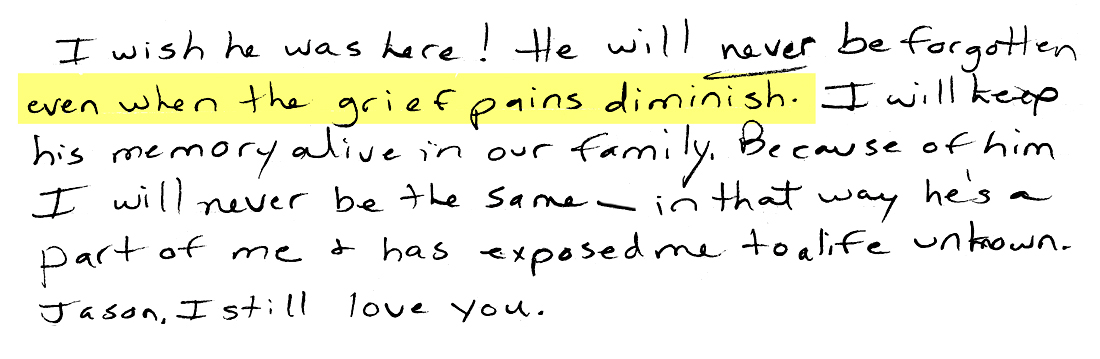 I wish he was here! He will never be forgotten
even when the grief pains diminish. I will keep
his memory alive in our family. Because of him
I will never be the same — in that way he's a
part of me & has exposed me to a life unknown.
Jason, I still love you.